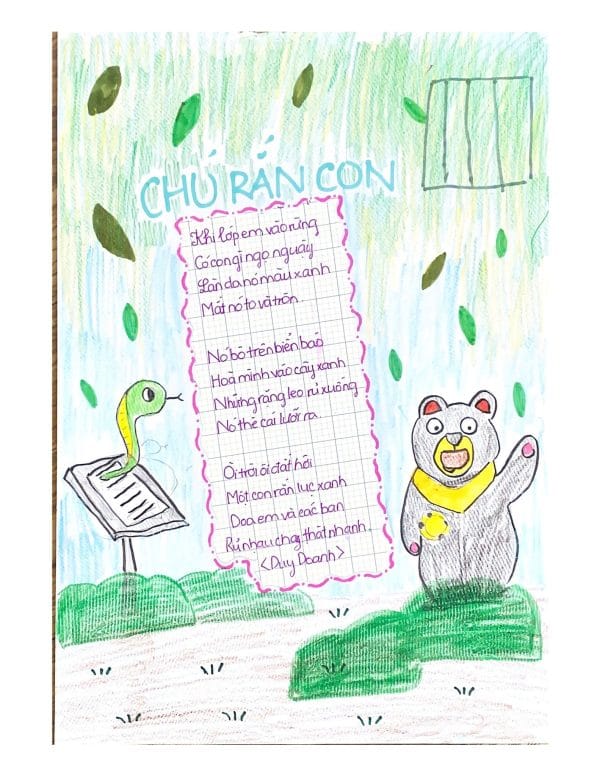 CHÚ RẮN CON
Khi lớp em vào rừng
Có con gì ngọ nguậy
Làn da nó màu xanh
Mắt nó to và tròn
Nó bò trên biển báo
Hoà mình vào cây xanh
Những răng leo rủ xuống
Nó thè cái lưỡi ra
Ôi trời ôi đất hỡi
Một con rắn lục xanh
Doạ em và các bạn
Rủ nhau chạy thật nhanh.
<Duy Doanh>